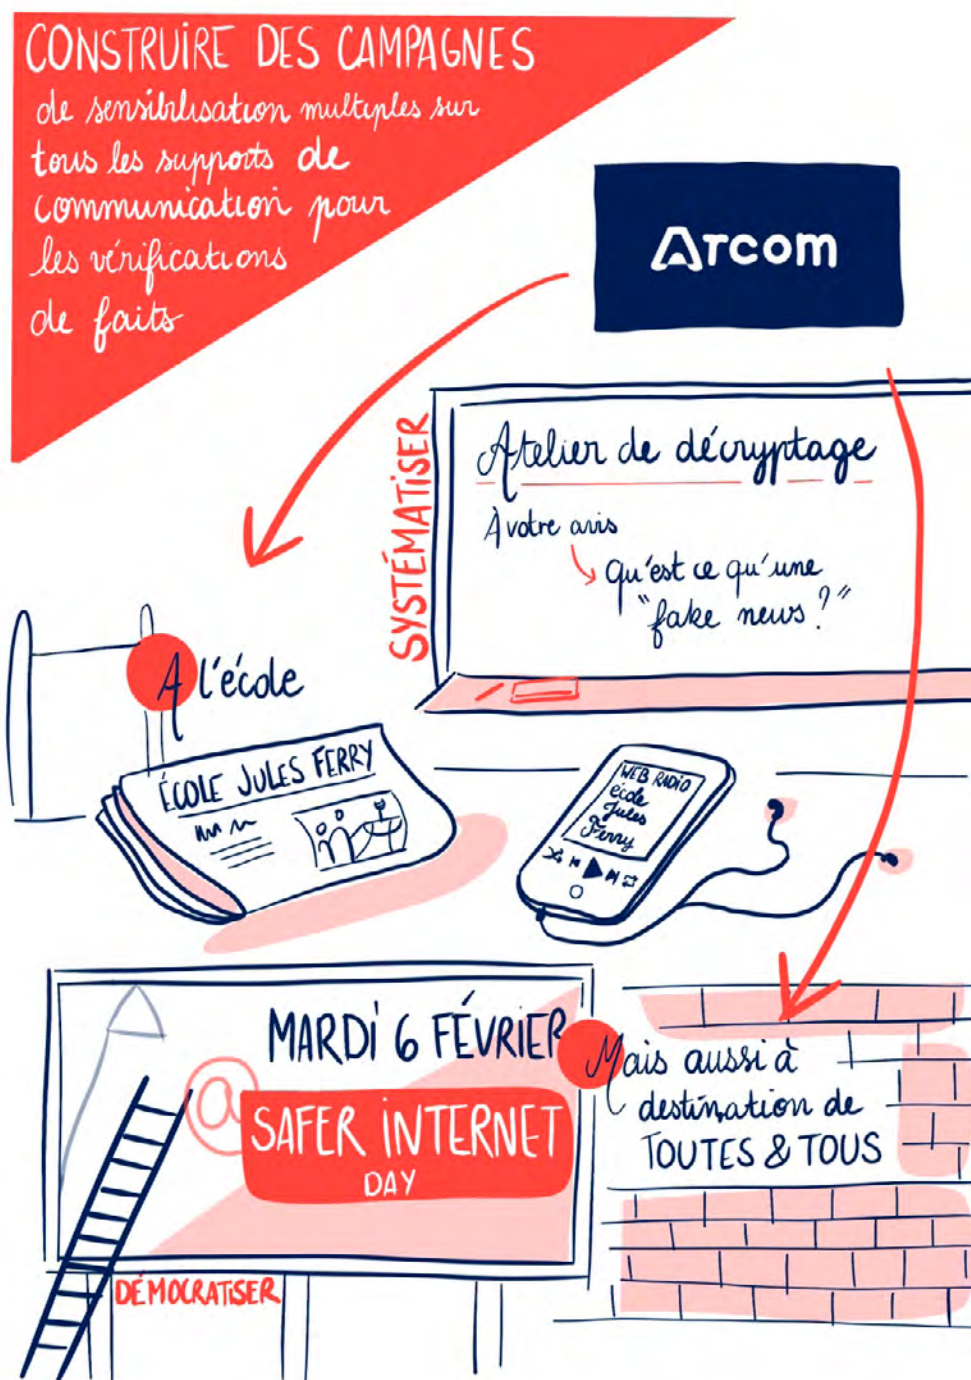 CONSTRUIRE DES CAMPAGNES
de sensibilisation multiples sur
tous les supports de
communication pour
les vérifications
de faits
Arcom
SYSTÉMATISER
Atelier de décryptage
À votre avis
Qu'est ce qu'une
"fake news?"
A l'école
ÉCOLE JULES FERRY
WEB RADIO
école
Jules
Ferry
MARDI 6 FÉVRIER
@
SAFER INTERNET
DAY
Mais aussi à
destination de
TOUTES & TOUS
DÉMOCRATISER